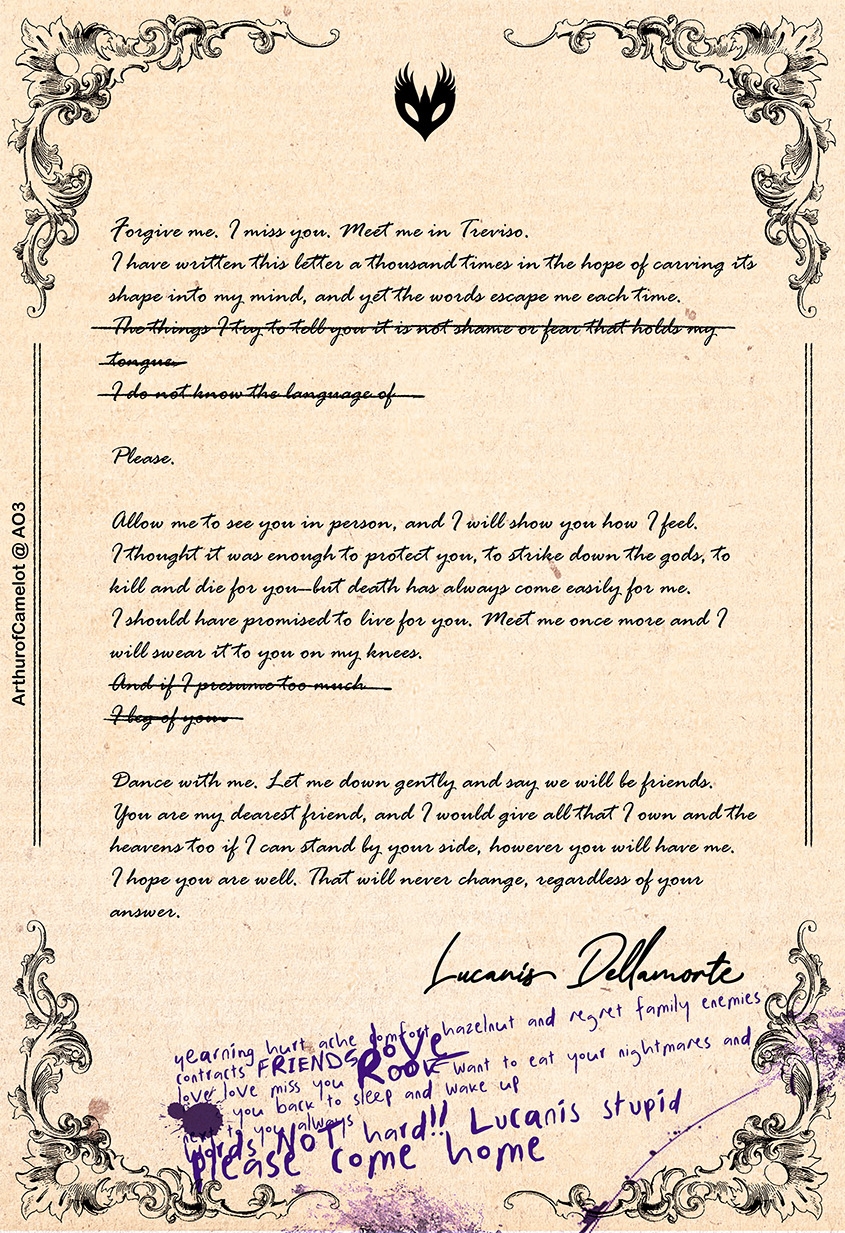 Forgive me. I miss you. Meet me in Treviso.
I have written this letter a thousand times in the hope of carving its
shape into my mind, and yet the words escape me each time.
The things I try to tell you it is not shame or fear that holds my
tongue.
I do not know the language of
Please.
Allow me to see you in person, and I will show you how I feel.
I thought it was enough to protect you, to strike down the gods, to
kill and die for you—but death has always come easily for me.
I should have promised to live for you. Meet me once more and I
will swear it to you on my knees.
And if I presume too much
I beg of you.
Dance with me. Let me down gently and say we will be friends.
You are my dearest friend, and I would give all that I own and the
heavens too if I can stand by your side, however you will have me.
I hope you are well. That will never change, regardless of your
answer.
Lucanis Dellamorte
yearning hurt ache comfort hazelnut and regret family enemies
contracts FRIENDS love
love love miss you ROOK want to eat your nightmares and
you back to sleep and wake up
next to you always
words NOT hard!! Lucanis stupid
please come home
ArthurofCamelot @ AO3